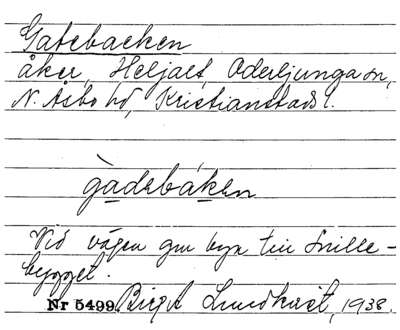 Gatebacken
åker, Heljalt, Oderljunga sn,
N. Åsbo hd, Kristianstads l.
gàdebáken
Vid vägen gm byn till Snille-
bygget.
Nr 5499. Birgit Lundkvist, 1938.